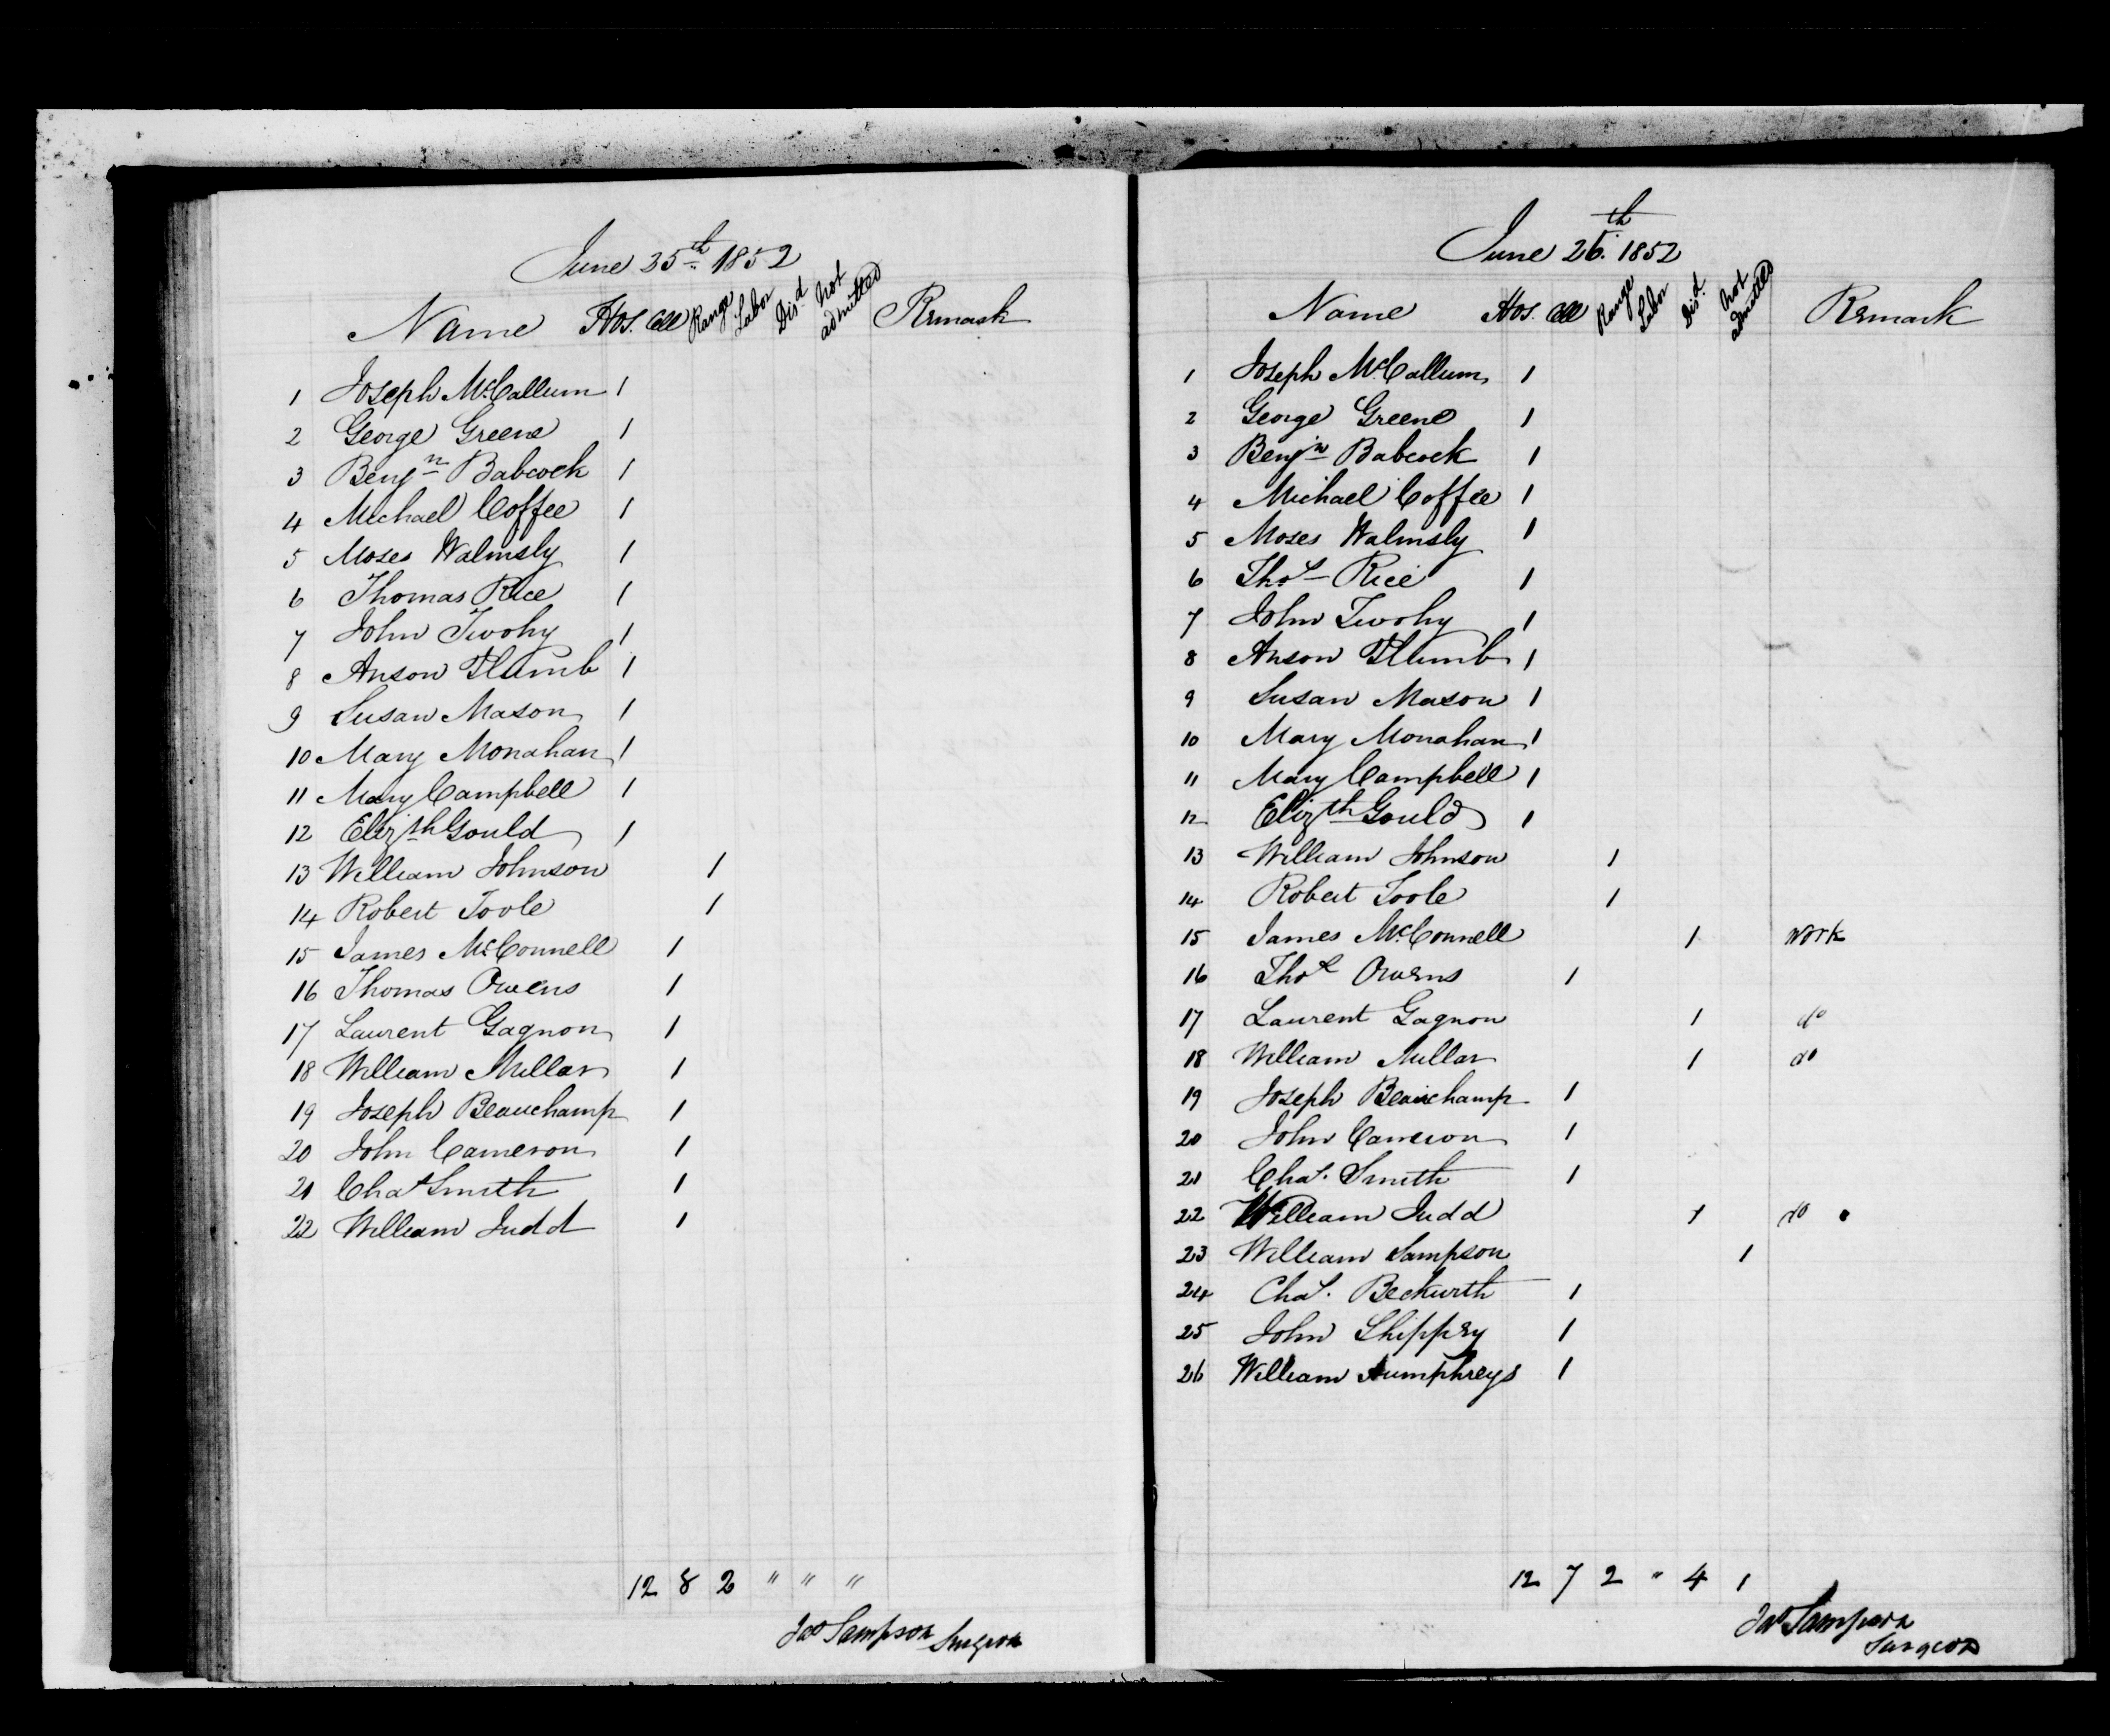 June 25th 1852
Name Hos. Cell Range Labor Disd. Not admitted Remark
1 Joseph McCallum 1
2 George Greene 1
3 Benjn Babcock 1
4 Michael Coffee 1
5 Moses Walmsly 1
6 Thomas Rice 1
7 John Twohy 1
8 Anson Plumb 1
9 Susan Mason 1
10 Mary Monahan 1
11 Mary Campbell 1
12 Elizth Gould 1
13 William Johnson 1
14 Robert Toole 1
15 James McConnell 1
16 Thomas Owens 1
17 Laurent Gagnon 1
18 William Millar 1
19 Joseph Beauchamp 1
20 John Cameron 1
21 Chas Smith 1
22 William Judd 1
12 8 2 " " "
Jas Sampson Surgeon
June 26th. 1852
Name Hos. Cell Range Labor Disd. Not admitted Remark
1 Joseph McCallum 1
2 George Greene 1
3 Benjn Babcock 1
4 Michael Coffee 1
5 Moses Walmsly 1
6 Thos Rice 1
7 John Twohy 1
8 Anson Plumb 1
9 Susan Mason 1
10 Mary Monahan 1
11 Mary Campbell 1
12 Elizth Gould 1
13 William Johnson 1
14 Robert Toole 1
15 James McConnell 1 work
16 Thos Owens 1
17 Laurent Gagnon 1 do
18 William Millar 1 do
19 Joseph Beauchamp 1
20 John Cameron 1
21 Chas. Smith 1
22 William Judd 1 do
23 William Sampson 1
24 Chas. Beckwith 1
25 John Shippey 1
26 William Humphreys 1
12 7 2 " 4 1
Jas Sampson
Surgeon